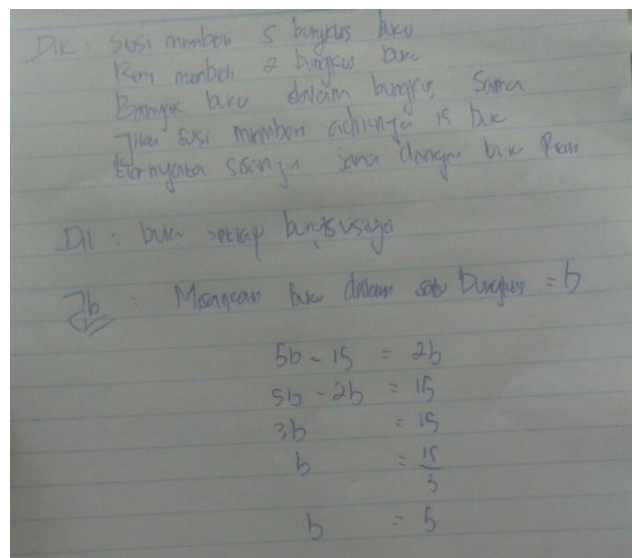 Dik : Susi membeli 5 bungkus buku
Reni membeli 2 bungkus buku
Banyak buku dalam bungkus sama
Jika susi memberi adiknya 15 buku
ternyata sisanya sama dengan buku
Dit : buku setiap bungkusnya
Jb : Misalkan buku dalam satu bungkus = b
5b - 15 = 2b
5b - 2b = 15
3b = 15
b = 15/3
b = 5